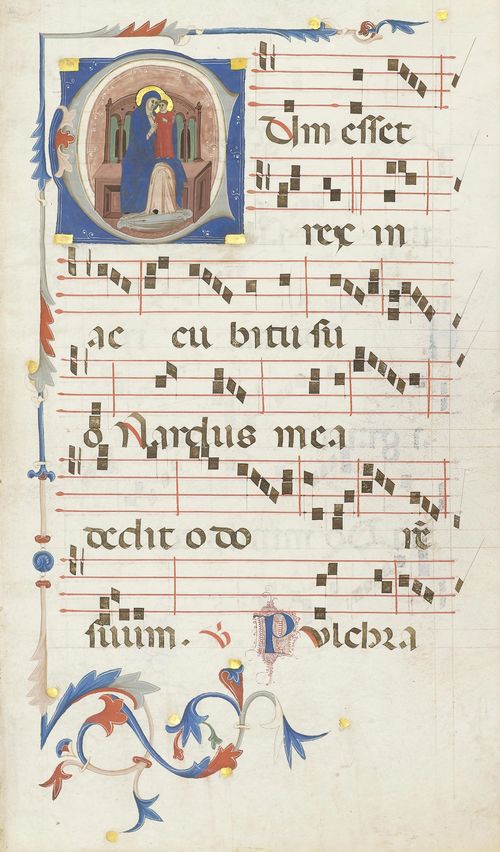 CUm esset
rex in
ac cu bitu su
o Nardus mea
dedit odo rē
suum. ℣ Pulchra